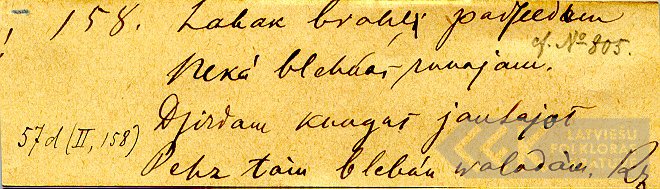 158. Labak brahļi padseedam
cf. № 805.
Nekā blehņas runajam.
Dzirdam kungas jautajot
57d (II, 158)
Pehz tām blehņu walodām. Rz
LATVIEŠU
FOLKLORAS